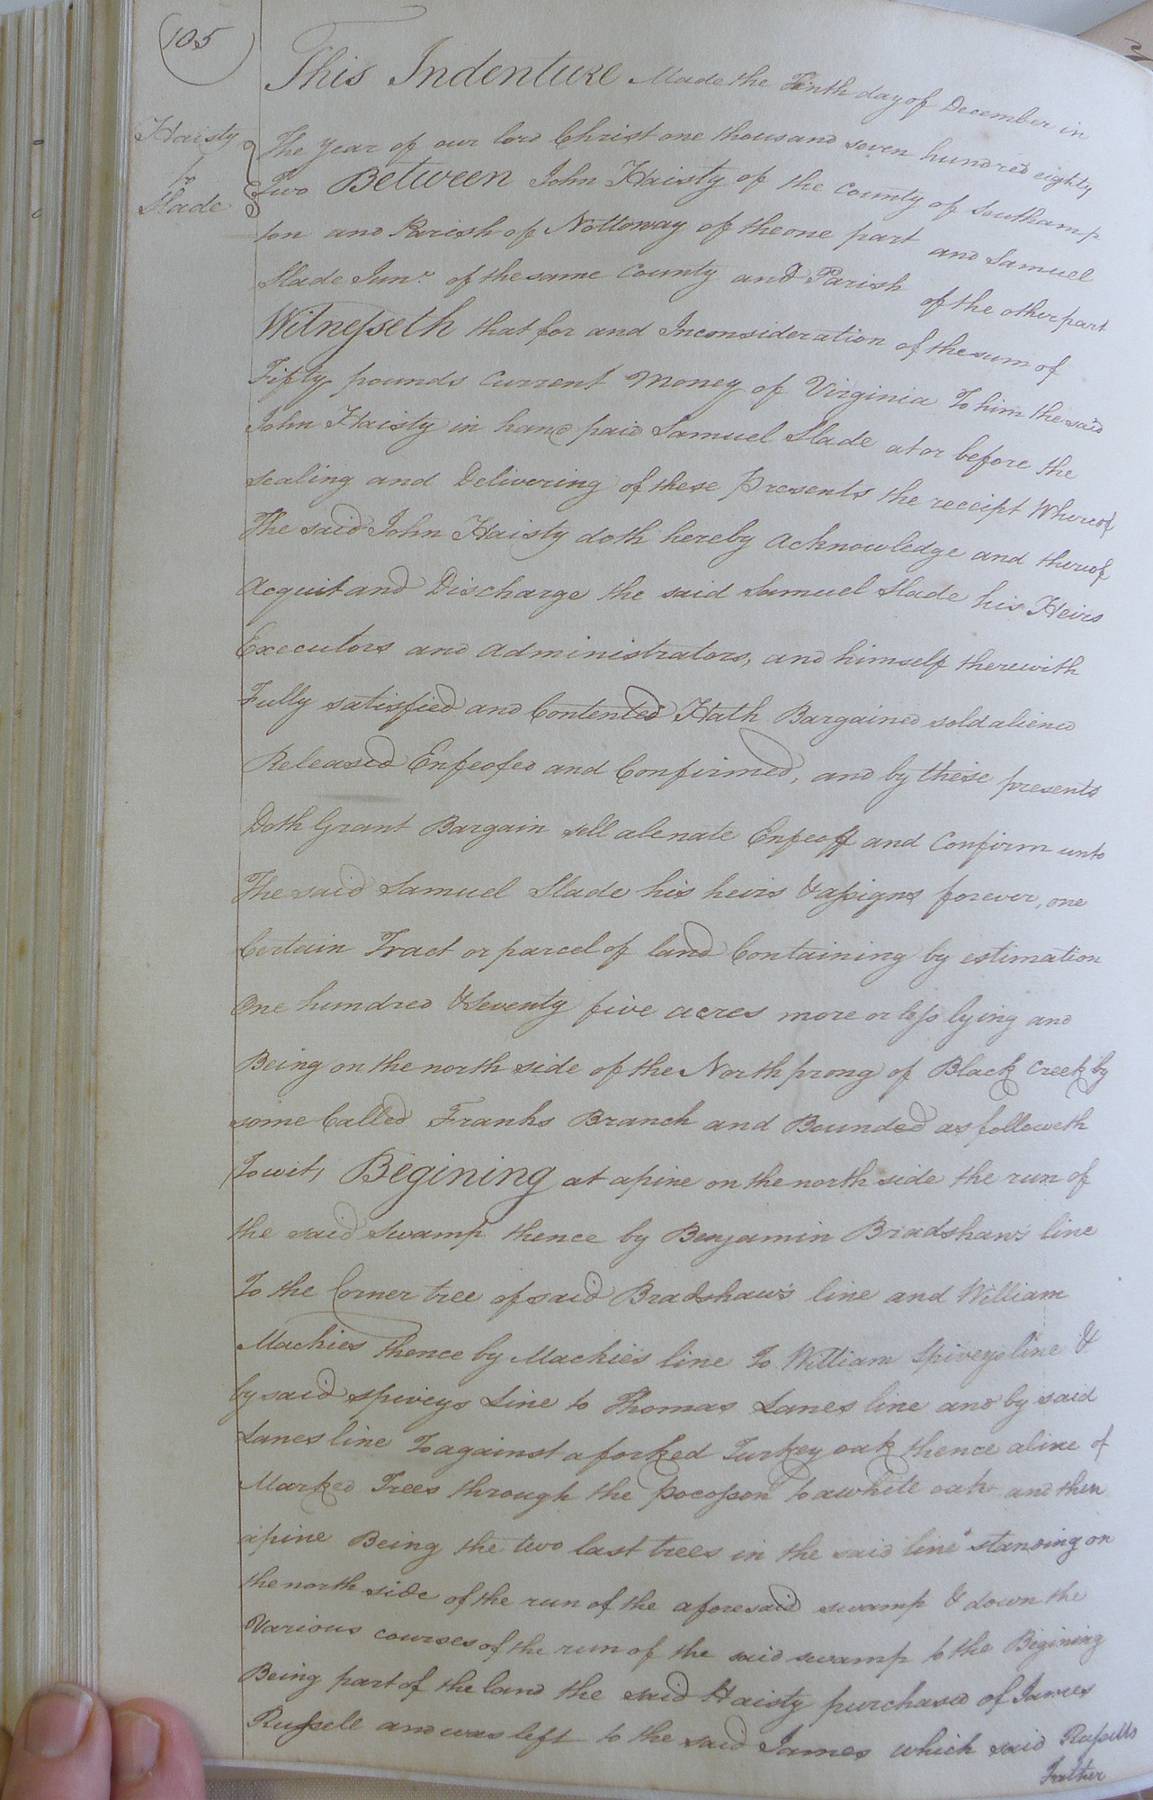 105
Haisty
To
Slade
This Indenture Made the Tenth day of December in
The year of our lord Christ one thousand seven hundred eighty
Two Between John Haisty of the county of Southamp
ton and Parish of Nottoway of the one part and Samuel
Slade Junr. of the same County and Parish of the other part
Witnesseth that for and Inconsideration of the sum of
Fifty pounds Current Money of Virginia To him the said
John Haisty in hand paid Samuel Slade at or before the
sealing and Delivering of these Presents the receipt Whereof
The said John Haisty doth hereby Acknowledge and thereof
Acquit and Discharge the said Samuel Slade his Heirs
Executors and Administrators, and himself therewith
Fully satisfied and Contented Hath Bargained sold aliened
Released Enfeofed and Confirmed, and by these presents
Doth Grant Bargain sell alenate Enfeoff and Confirm unto
The said Samuel Slade his heirs & assigns forever, one
Certain Tract or parcel of land Containing by estimation
One hundred & seventy five acres more or less lying and
Being on the north side of the North prong of Black Creek by
some Called Franks Branch and Bounded as followeth
Towit, Begining at a pine on the north side the run of
the said swamp thence by Benjamin Bradshaws line
To the Corner tree of said Bradshaws line and William
Mackies thence by Mackies line To William Spiveys line &
by said spiveys Line to Thomas Lanes line and by said
Lanes line To against a forked Turkey oak thence a line of
Marked Trees through the pocosson to a white oak and then
a pine Being the two last trees in the said line standing on
the north side of the run of the aforesaid swamp & down the
Various courses of the run of the said swamp to the Begining
Being part of the land the said Haisty purchased of James
Russell and was left to the said James which said Russells
Father